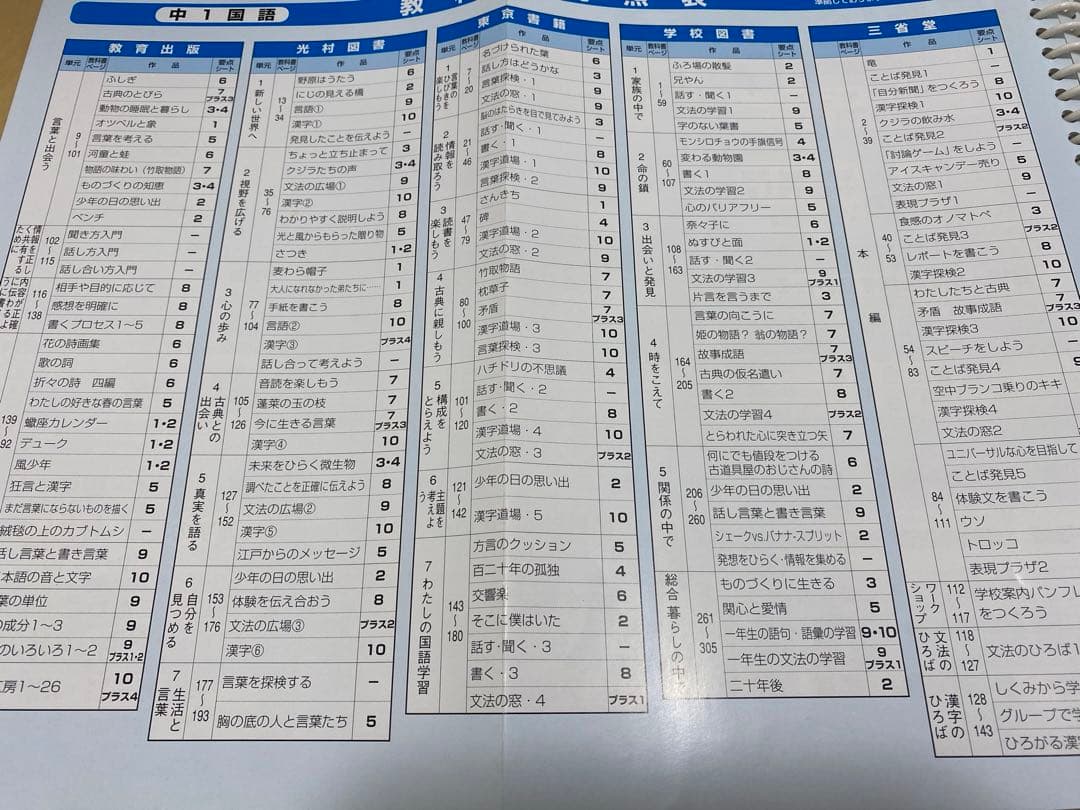 中1国語
教育出版
単元 教科書ページ 作品 要点シート
言葉と出会う 9〜101
ふしぎ 6
古典のとびら 7 プラス3
動物の睡眠と暮らし 3・4
オツベルと象 1
言葉を考える 5
河童と蛙 6
物語の味わい(竹取物語) 7
ものづくりの知恵 3・4
少年の日の思い出 2
ベンチ 2
情報を正しく共有するために 102〜115
聞き方入門 −
話し方入門 −
話し合い方入門 −
116〜138
相手や目的に応じて 8
感想を明確に 8
書くプロセス1〜5 8
139〜 92
花の詩画集 6
歌の詞 6
折々の詩 四編 6
わたしの好きな春の言葉 5
蠟座カレンダー 1・2
デューク 1・2
風少年 1・2
狂言と漢字 5
まだ言葉にならないものを描く 5
絨毯の上のカブトムシ −
話し言葉と書き言葉 9
本語の音と文字 10
葉の単位 9
の成分1〜3 9
のいろいろ1〜2 9 プラス1・2
工房1〜26 10 プラス4
光村図書
単元 教科書ページ 作品 要点シート
1 新しい世界へ 13〜34
野原はうたう 6
にじの見える橋 2
言語① 9
漢字① 10
発見したことを伝えよう −
2 視野を広げる 35〜76
ちょっと立ち止まって 3
クジラたちの声 3・4
文法の広場① 9
漢字② 10
わかりやすく説明しよう 8
光と風からもらった贈り物 5
3 心の歩み 77〜104
さつき 1・2
麦わら帽子 1
大人になれなかった弟たちに…… 1
手紙を書こう 8
言語② 10
漢字③ プラス4
話し合って考えよう −
4 古典との出会い 105〜126
音読を楽しもう 7
蓬莱の玉の枝 7
今に生きる言葉 7 プラス3
漢字④ 10
5 真実を語る 127〜152
未来をひらく微生物 3・4
調べたことを正確に伝えよう 8
文法の広場② 9
漢字⑤ 10
江戸からのメッセージ 5
6 自分を見つめる 153〜176
少年の日の思い出 2
体験を伝え合おう 8
文法の広場③ プラス2
漢字⑥ 10
7 生活と言葉 177〜193
言葉を探検する −
胸の底の人と言葉たち 5
東京書籍
単元 教科書ページ 作品 要点シート
1 言葉のひびきを楽しもう 7〜20
名づけられた葉 6
話し方はどうかな 3
言葉探検・1 9
文法の窓・1 9
2 情報を読み取ろう 21〜46
脳のはたらきを目で見てみよう 3
話す・聞く・1 −
書く・1 8
漢字道場・1 10
言葉探検・2 9
3 読書を楽しもう 47〜79
さんきち 1
碑 4
漢字道場・2 10
文法の窓・2 9
4 古典に親しもう 80〜100
竹取物語 7
枕草子 7
矛盾 7 プラス3
漢字道場・3 10
言葉探検・3 10
5 構成をとらえよう 101〜120
ハチドリの不思議 4
話す・聞く・2 −
書く・2 8
漢字道場・4 10
文法の窓・3 プラス2
6 主題を考えよう 121〜142
少年の日の思い出 2
漢字道場・5 10
7 わたしの国語学習 143〜180
方言のクッション 5
百二十年の孤独 4
交響楽 6
そこに僕はいた 2
話す・聞く・3 −
書く・3 8
文法の窓・4 プラス1
学校図書
単元 教科書ページ 作品 要点シート
1 家族の中で 1〜59
ふろ場の散髪 2
兄やん 2
話す・聞く1 −
文法の学習1 9
字のない葉書 5
2 命の鎖 60〜107
モンシロチョウの手旗信号 4
変わる動物園 3・4
書く1 8
文法の学習2 9
心のバリアフリー 5
3 出会いと発見 108〜163
奈々子に 6
ぬすびと面 1・2
話す・聞く2 −
文法の学習3 9 プラス1
片言を言うまで 3
4 時をこえて 164〜205
言葉の向こうに 7
姫の物語? 翁の物語? 7
故事成語 7 プラス3
古典の仮名遣い 7
書く2 8
文法の学習4 プラス2
とらわれた心に突き立つ矢 7
5 関係の中で 206〜260
何にでも値段をつける古道具屋のおじさんの詩 6
少年の日の思い出 2
話し言葉と書き言葉 9
シェークvs.バナナ・スプリット 2
発想をひらく・情報を集める −
総合 暮らしの中で 261〜305
ものづくりに生きる 3
関心と愛情 5
一年生の語句・語彙の学習 9・10
一年生の文法の学習 9 プラス1
二十年後 2
三省堂
単元 教科書ページ 作品
本編
2〜39
竜 1
ことば発見1
「自分新聞」をつくろう 8
漢字探検1 10
クジラの飲み水 3・4
ことば発見2 プラス2
「討論ゲーム」をしよう −
アイスキャンデー売り 5
文法の窓1 9
表現プラザ1
40〜53
食感のオノマトペ 3
ことば発見3 プラス2
レポートを書こう 8
漢字探検2 10
54〜83
わたしたちと古典 7
矛盾 故事成語 7 プラス3
漢字探検3 10
スピーチをしよう −
ことば発見4
空中ブランコ乗りのキキ
漢字探検4
文法の窓2
84〜111
ユニバーサルな心を目指して
ことば発見5
体験文を書こう
ウソ
トロッコ
表現プラザ2
ワークショップ 112〜117
学校案内パンフレ をつくろう
文法のひろば 118〜127
文法のひろば1
漢字のひろば 128〜143
しくみから学
グループで学
ひろがる漢字